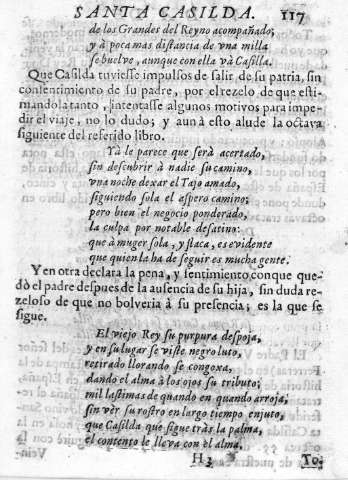 SANTA CASILDA. 117
de los Grandes del Reyno acompañado;
y à poca mas distancia de una milla
se buelve, aunque con ella và Casilla.
Que Casilda tuviesse impulsos de salir de su patria, sin
consentimiento de su padre, por el rezelo de que esti-
mandola tanto, intentasse algunos motivos para impe-
dir el viaje, no lo dudo; y aun à esto alude la octava
siguiente del referido libro.
Yà le parece que serà acertado,
sin descubrir à nadie su camino,
una noche dexar el Tajo amado,
siguiendo sola el aspero camino;
pero bien el negocio ponderado,
la culpa por notable desatino:
que à muger sola, y flaca, es evidente
que quien la ha de seguir es mucha gente.
Y en otra declara la pena, y sentimiento con que que-
dò el padre despues de la ausencia de su hija, sin duda re-
zeloso de que no bolveria à su presencia; es la que se
sigue.
El viejo Rey su purpura despoja,
y en su lugar se viste negro luto,
retirado llorando se congoxa,
dando el alma à los ojos su tributo;
mil lastimas de quando en quando arroja,
sin vèr su rostro en largo tiempo enjuto,
que Casilda que sigue tràs la palma,
el contento le lleva con el alma.
H3 Yo.